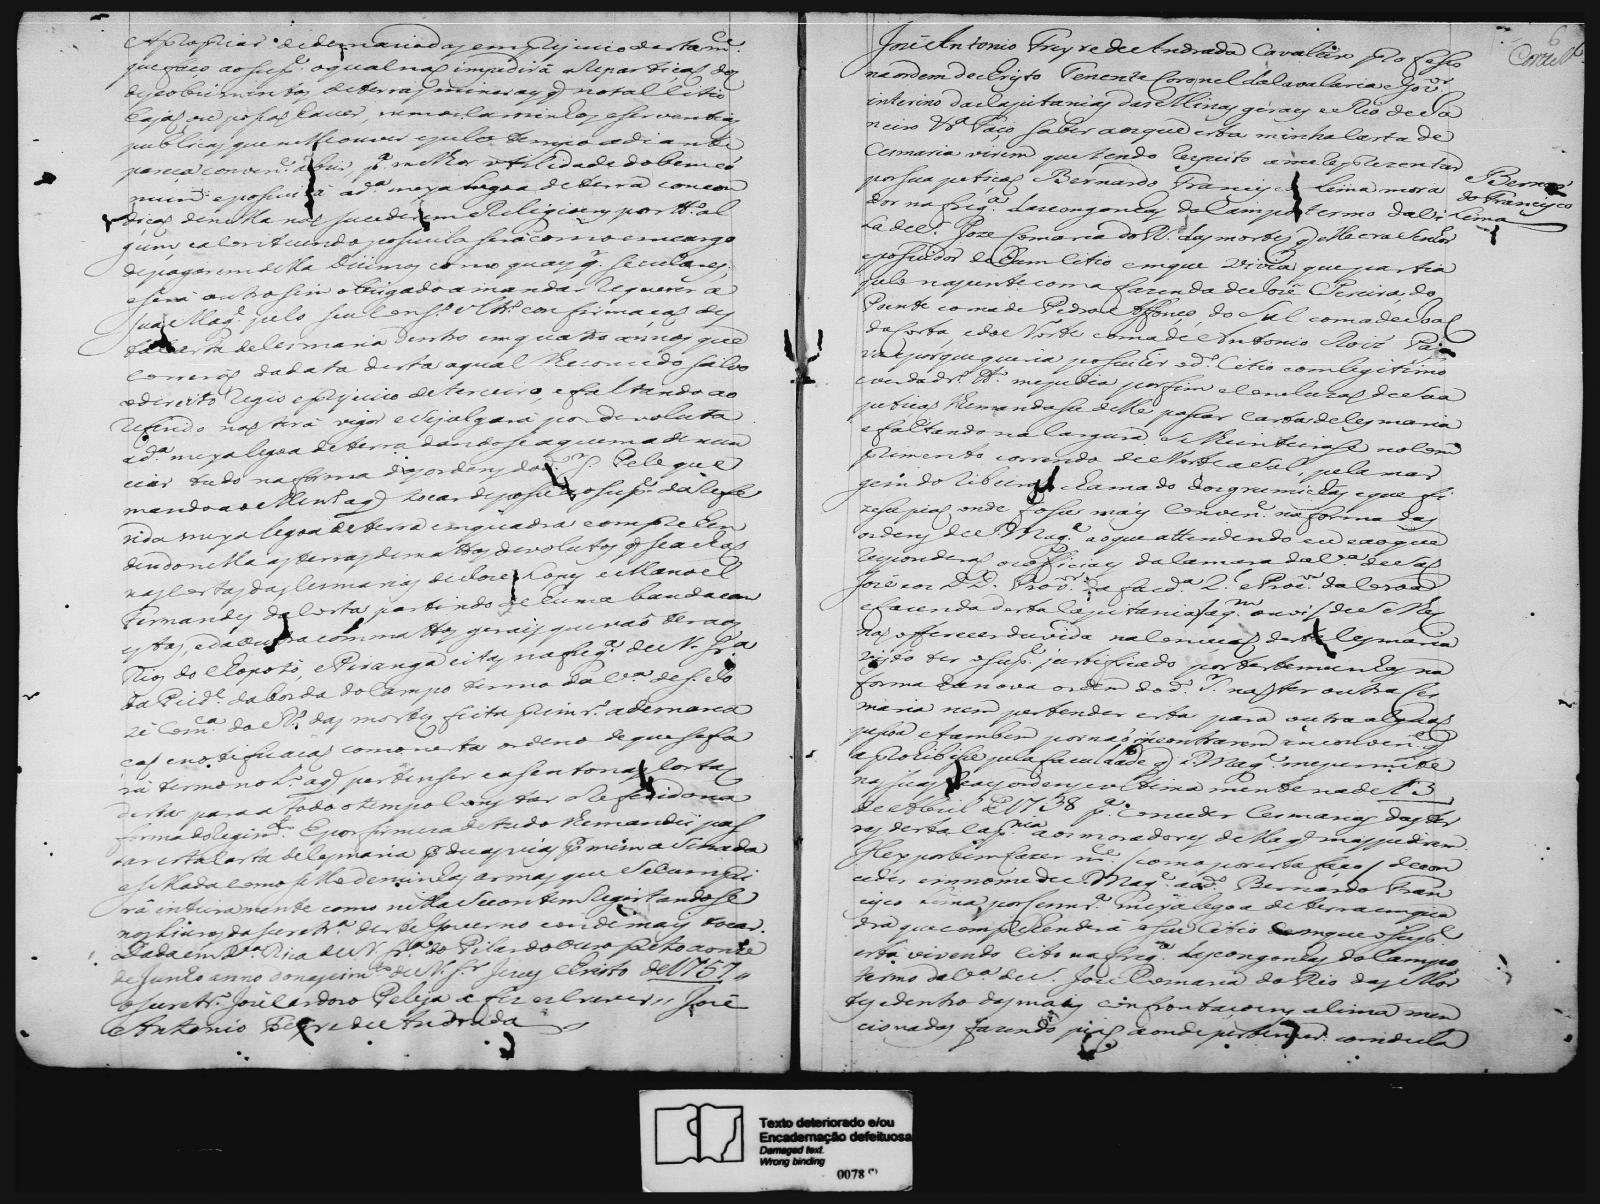 Apropriar de demaziadas em prejuizo desta m.ce
que faço ao sup.e o qual não impedirá a repartição dos
descobrimentos de terras mineraes q̃ no tal sitio
hajão ou possão haver, nem os caminhos e serventias
publicas que nelle ouver e pelo tempo adiante
pareça conven.te abrir p.a melhor utilidade do bem co
mum e possuirá a d.a meya legoa de terra com con
dição de nella não sucederem Religioens por tt.o al
gum, e acontecendo possuila será com o encargo
de pagarem della Dizimos como quaes q.r seculares,
e será outro sim obrigado a mandar requerer a
Sua Mag.e pelo seu Cons.o Ultr.o confirmação des
ta carta de Cesmaria dentro em quatro annos que
correrão da data desta a qual lhe concedo salvo
o direito regio e prejuizo de terceiro, e faltando ao
referido não terá vigor e se julgará por devoluta
a d.a meya legoa de terra dando se a quem a denun
ciar tudo na forma das ordens do d.o S.r Pelo que
mando ao Ministro a q̃ tocar dê posse ao sup.e da refe
rida meya legoa de terra em quadra comprehen
dendo nella as terras de mattos devolutos q̃ se achão
nas certas das sesmarias de Jose Lopes e Manoel
Fernandes da Costa partindo de huma banda com
estas, e da outra com mattos geraes que vão ter aos
Rios do Chopotó, e Piranga citas na freg.a de N. Sr.a
da Pied.e da borda do Campo termo da V.a de S. Jo
zé Com.ca do R. das mortes feita prim.ro a demarca
ção e notificação como nesta ordeno de que se fa
rá termo no L.o a q̃ pertenser e asento nas costas
desta para a todo o tempo constar o referido na
forma do regim.to E por firmeza de tudo lhe mandei pas
sar esta Carta de Cesmaria p.r duas vias p.r mim asinada
e sellada com o sello de minhas armas que se cumpri
rá inteiramente como nella se contem registandose
nos livros da Secretr.a deste Governo e onde mais tocar.
Dada em V.a Rica de N. Sr.a do Pilar do Ouro preto a onze
de Junho anno do nascim.to de N. Sr. Jesus Christo de 1757 //
o Secretr.o José Cardozo Peleja a fiz escrever // José
Antonio Freyre de Andrada
6
José Antonio Freyre de Andrada Cavalleiro professo
na ordem de Cristo Tenente Coronel de Cavalaria e Gov.or
interino da Capitanias das Minas geraes e Rio de Ja
neiro &.a Faço saber aos que esta minha Carta de
Cesmaria virem que tendo respeito a me reprezentar
por sua petição Bernardo Francisco Lima mora
dor na freg.a das congonhas do Campo termo da Vi
la de S. Joze Comarca do R. das mortes q̃ elle era Senhor
e possuidor de hum Citio em que vivia que partia
pelo nascente com a fazenda de José Pereira, do
Poente com a de Pedro Affonço, do Sul com a de João
da Costa, e do Norte com a de Antonio Roiz Pai
va e porque queria possuir o d.o Citio com legitimo
e verdadr.o tt.o me pedia por fim e concluzão de sua
petição lhe mandase delle passar carta de Cesmaria
e faltando na largura se lhe inteirase no com
primento correndo de Norte a Sul, pela mar
gem do ribeirão chamado dos gramichás, e que fi
zese pião onde fosse mais conven.te na forma das
ordens de S. Mag.e ao que attendendo eu e ao que
responderão os officiaes da Camara da V.a de São
José e os D.D. Prov.or da faz.da R. e Proc.or da Coroa
e fazenda desta Capitania (a q.m ouvi) de se lhes
não offerecer duvida na concessão desta Cesmaria
visto ter o sup.e justificado por testemunhas na
forma da nova ordem do d.o S.r não ter outra ses
maria nem pertender esta para outra algua
pesoa e tambem por não encontrarem inconven.te q̃
a prohibise pela faculdade q̃ S. Mag.e me permitte
nas suas reays ordens e ultimamente na de 13
de Abril de 1738 p.a conceder Cesmarias das ter
ras desta Cap.nia aos moradores della q̃ mas pedirem
Hey por bem fazer m.ce (como por esta faço) de con
ceder em nome de S. Mag.e ao d.o Bernardo Fran
cisco Lima por sesmr.a meya legoa de terra em qua
dra que comprehenderá o seu Citio em que o sup.e
está vivendo cito na freg.a das congonhas do Campo
termo da V.a de S. José Comarca do Rio das Mor
tes dentro das mais confrontaçoens asima men
cionadas fazendo pião aonde pertencer. com decla
Bernar
do Francisco
Lima
Texto deteriorado e/ou
Encadernação defeituosa
Damaged text
Wrong binding
0078 (*)